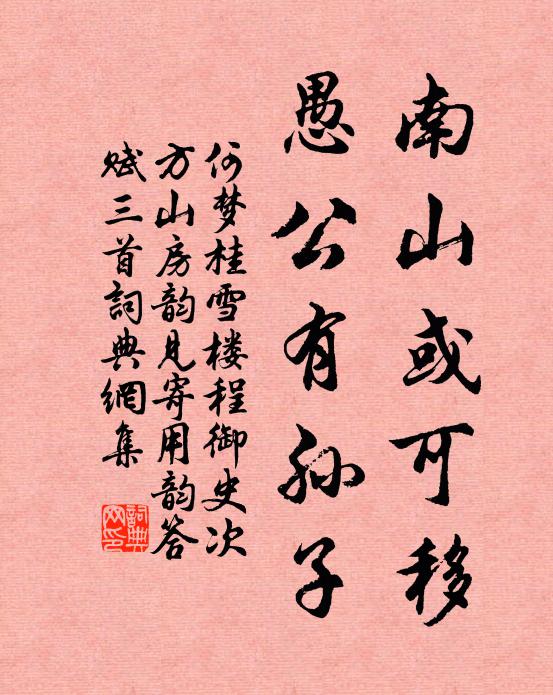 南山或可移
愚公有孙子
何梦桂雪楼程御史次
方山房韵见寄用韵答
赋三首詞典網集
詞典
网印